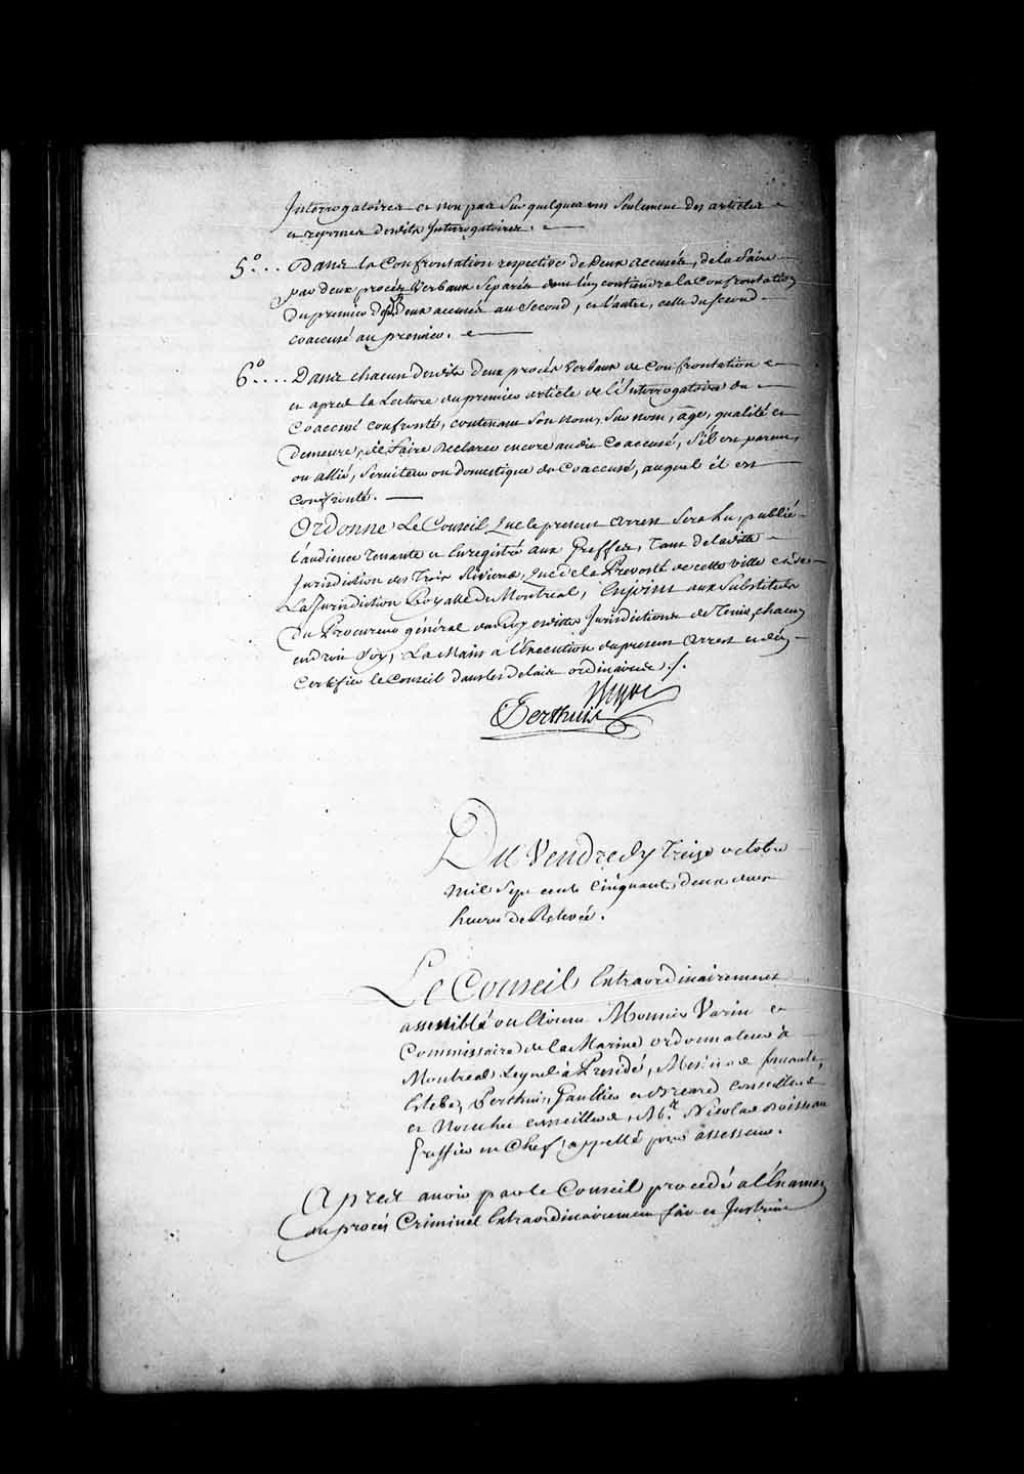 Interrogatoires et non pas sur quelques uns seulement des articles
et reponses desdits Interrogatoires.
5.° ... Dans la Confrontation respective de Deux accusés, de la faire
par deux procès Verbaux separés dont l'un contiendra la Confrontation
Du premier des Deux accusés au second, et l'autre, celle du second
coaccusé au premier.
6.° .... Dans chacun desdits deux procès Verbaux de Confrontation
et apres la Lecture du premier article de l'Interrogatoire du
Coaccusé confronté, contenant son nom, surnom, âge, qualité et
demeure, de faire declarer encore audit Coaccusé, s'il est parent,
ou allié, serviteur ou domestique du Coaccusé, auquel il est
confronté.
Ordonne Le Conseil Que le present arrest sera lu, publié
l'audience tenante et Enregistré aux Greffes, tant de ladite
Jurisdiction des Trois Rivieres, que de la Prevosté de cette ville et de
La Jurisdiction Royalle de Montreal, Enjoint aux Substituts
Du Procureur général du Roy esdittes Jurisdictions de tenir, chacun
endroit soy, La Main a l'Execution du present arrest et d'en
Certifier le Conseil dans les delais ordinaires ./.
Perthuis
Du Vendredy treize octobre
mil sept cent cinquante deux deux
heures de Relevée.
Le Conseil Extraordinairement
assemblé ou Etoient Monsieur Varin
Commissaire de la Marine ordonnateur à
Montreal Lequel à Presidé, Messieurs
Estebe, Perthuis, Gaultier et Breard conseillers
et conseillers, Nicolas Boisseau
Greffier en Chef appellé pour assesseur.
Après avoir par le Conseil procedé a l'Examen
du procès Criminel Extraordinairement fait et Instruit